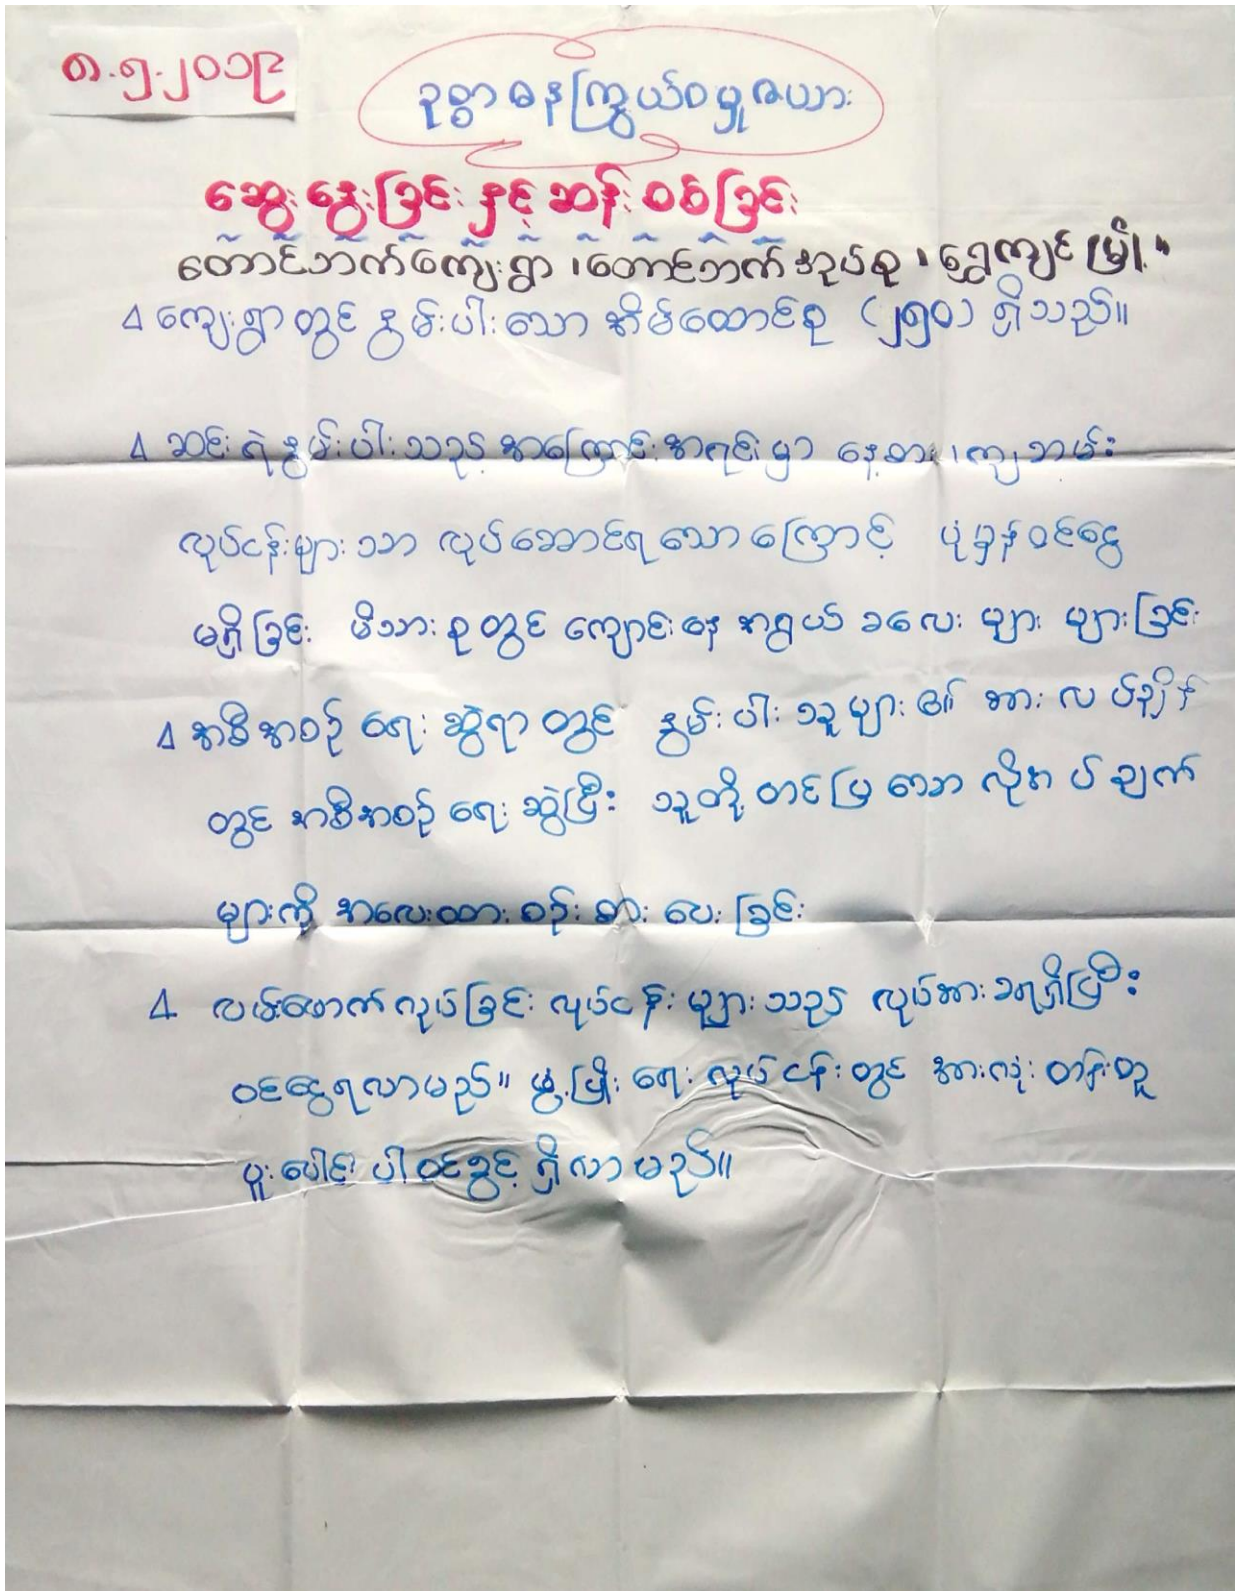 ၈.၅.၂၀၁၉
ဥစ္စာဓနကြွယ်ဝမှုဇယား
ဆွေးနွေးခြင်းနှင့်ဆန်းစစ်ခြင်း
တောင်ဘက်ကျေးရွာ ၊တောင်ဘက်အုပ်စု ၊ ရွှေကျင်မြို့ ။
Δ ကျေးရွာတွင် နွမ်းပါးသော အိမ်ထောင်စု (၂၅၀) ရှိသည်။
Δ ဆင်းရဲနွမ်းပါးသည့်အကြောင်းအရင်းမှာ နေ့စား ၊ကျဘမ်း
လုပ်ငန်းများသာ လုပ်ဆောင်ရသောကြောင့် ပုံမှန်ဝင်ငွေ
မရှိခြင်း မိသားစုတွင် ကျောင်းနေအရွယ် ခလေးများ များခြင်း
Δ အစီအစဉ် ရေးဆွဲရာတွင် နွမ်းပါးသူများ၏ အားလပ်ချိန်
တွင် အစီအစဉ် ရေးဆွဲပြီး သူတို့တင်ပြသော လိုအပ်ချက်
များကို အလေးထားစဉ်းစားပေးခြင်း
Δ လမ်းဖောက်လုပ်ခြင်း လုပ်ငန်းများသည် လုပ်အားခရရှိပြီး
ဝင်ငွေရလာမည်။ ဖွံ့ဖြိုးရေးလုပ်ငန်းတွင် အားလုံးတန်းတူ
ပူးပေါင်းပါဝင်ခွင့်ရှိလာမည်။